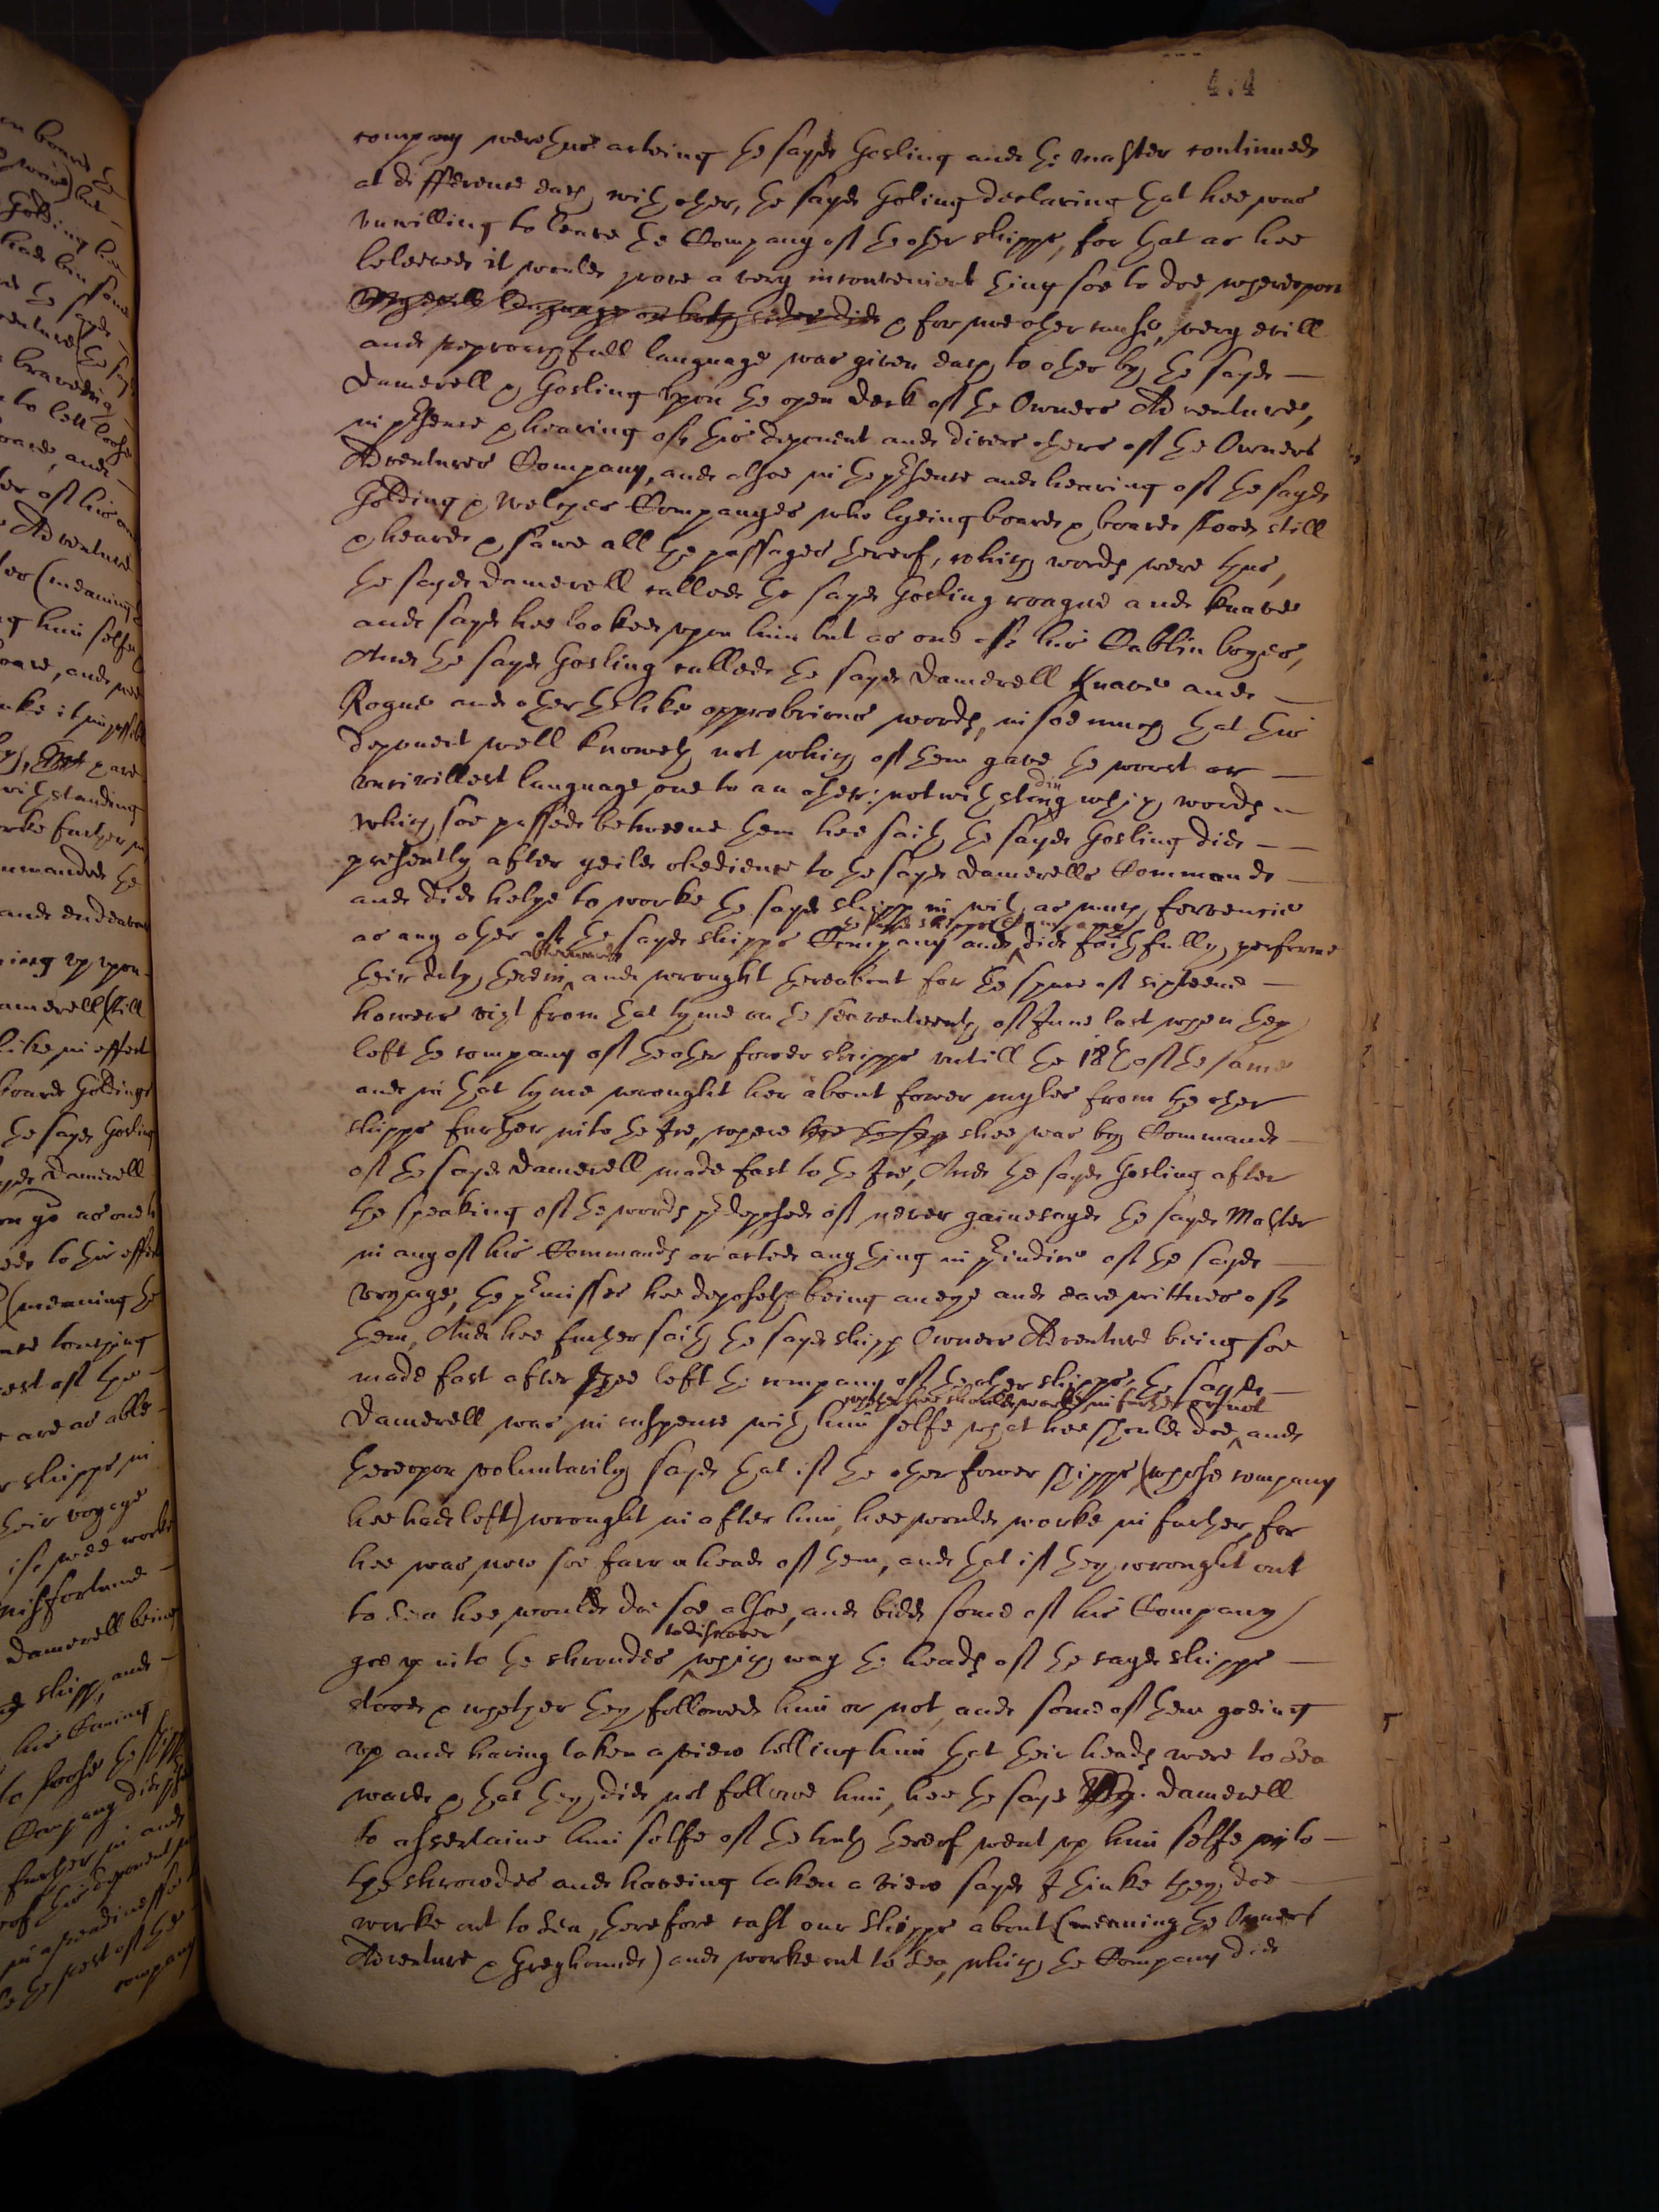 4.4
company were thus acteing the sayde Gosling and the Master continued
at difference each with other, the sayde Gosling declaring that hee was
unwilling to leave the Company of the other shipps, for that as hee
beleeved it would prove a very inconvenient thing soe to doe whereupon
very evill language on both sides did & for noe other cause, very evill
and reproachfull language was given each to other by the sayde
Damerell & Gosling upon the open deck of the Owners Adventure,
in presence & hearing of this deponent and divers others of the Owners
Adventures Company, and alsoe in the presence and hearing of the sayde
Golding & Welches Companyes who lyeing board & board stood still
& heard & sawe all the passages thereof, which words were thus,
the sayde Damerell called the sayde Gosling roague and knave
and sayd hee looked upon him but as one of his Cabbin boyes,
And the sayde Gosling called the sayde Damerell Knave and
Rogue and other the like opprobrious words, in soe much that this
deponent well knoweth not which of them gave the worst or
uncivillest language one to an other: notwithstanding which words
which soe passed betweene them hee saith the sayde Gosling did
presently after yeild obedience to the sayde Damerells Command
and did helpe to worke the sayd shipp in with as much fervencie
as any other of the sayde shipps Company and the sayd shipps Company did faithfully performe
their duty therein afterwards and wrought thereabout for the space of sixteene
howers vizt from that tyme on the seaventeenth of June last when they
left the company of the other fower shipps untill the 18th of the same
and in that tyme wrought her about fower myles from the other
shipps further into the Ice, where shee was by Command
of the sayde Damerell made fast to the Ice, And the sayde Gosling after
the speaking of the words predeposed of never gainesayde the sayde Master
in any of his Commands or acted any thing in hindire of the sayde
voyage, the premisses hee deposeth being an eye and eare wittnes of
them, And hee further saith the sayde shipp Owners Adventure being soe
made fast after shee left the company of the other shipps, the sayde
Damerell was in suspence with him selfe what hee should doe whether hee should worke in further or not and
thereupon voluntarily sayde that if the other fower shipps (whose company
hee had left) wrought in after him, hee would worke in further, for
hee was now soe farr a head of them, and that if they wrought out
to Sea hee would doe soe alsoe, and bidd some of his Company
goe up into the shrowdes to discover which way the heads of the sayde shipps
stood & whether they followed him or not, and some of them goeing
up and having taken a view telling him that their heads were to Sea
ward & that they did not follow him, hee the sayd Damerell
to assertaine him selfe of the truth thereof went up him selfe into
the shrowdes and haveing taken a view sayde I thinke they doe
worke out to Sea, therefore cast our shipps about (meaning the Owners
Adventure & Greyhound) and worke out to Sea, which the Company did